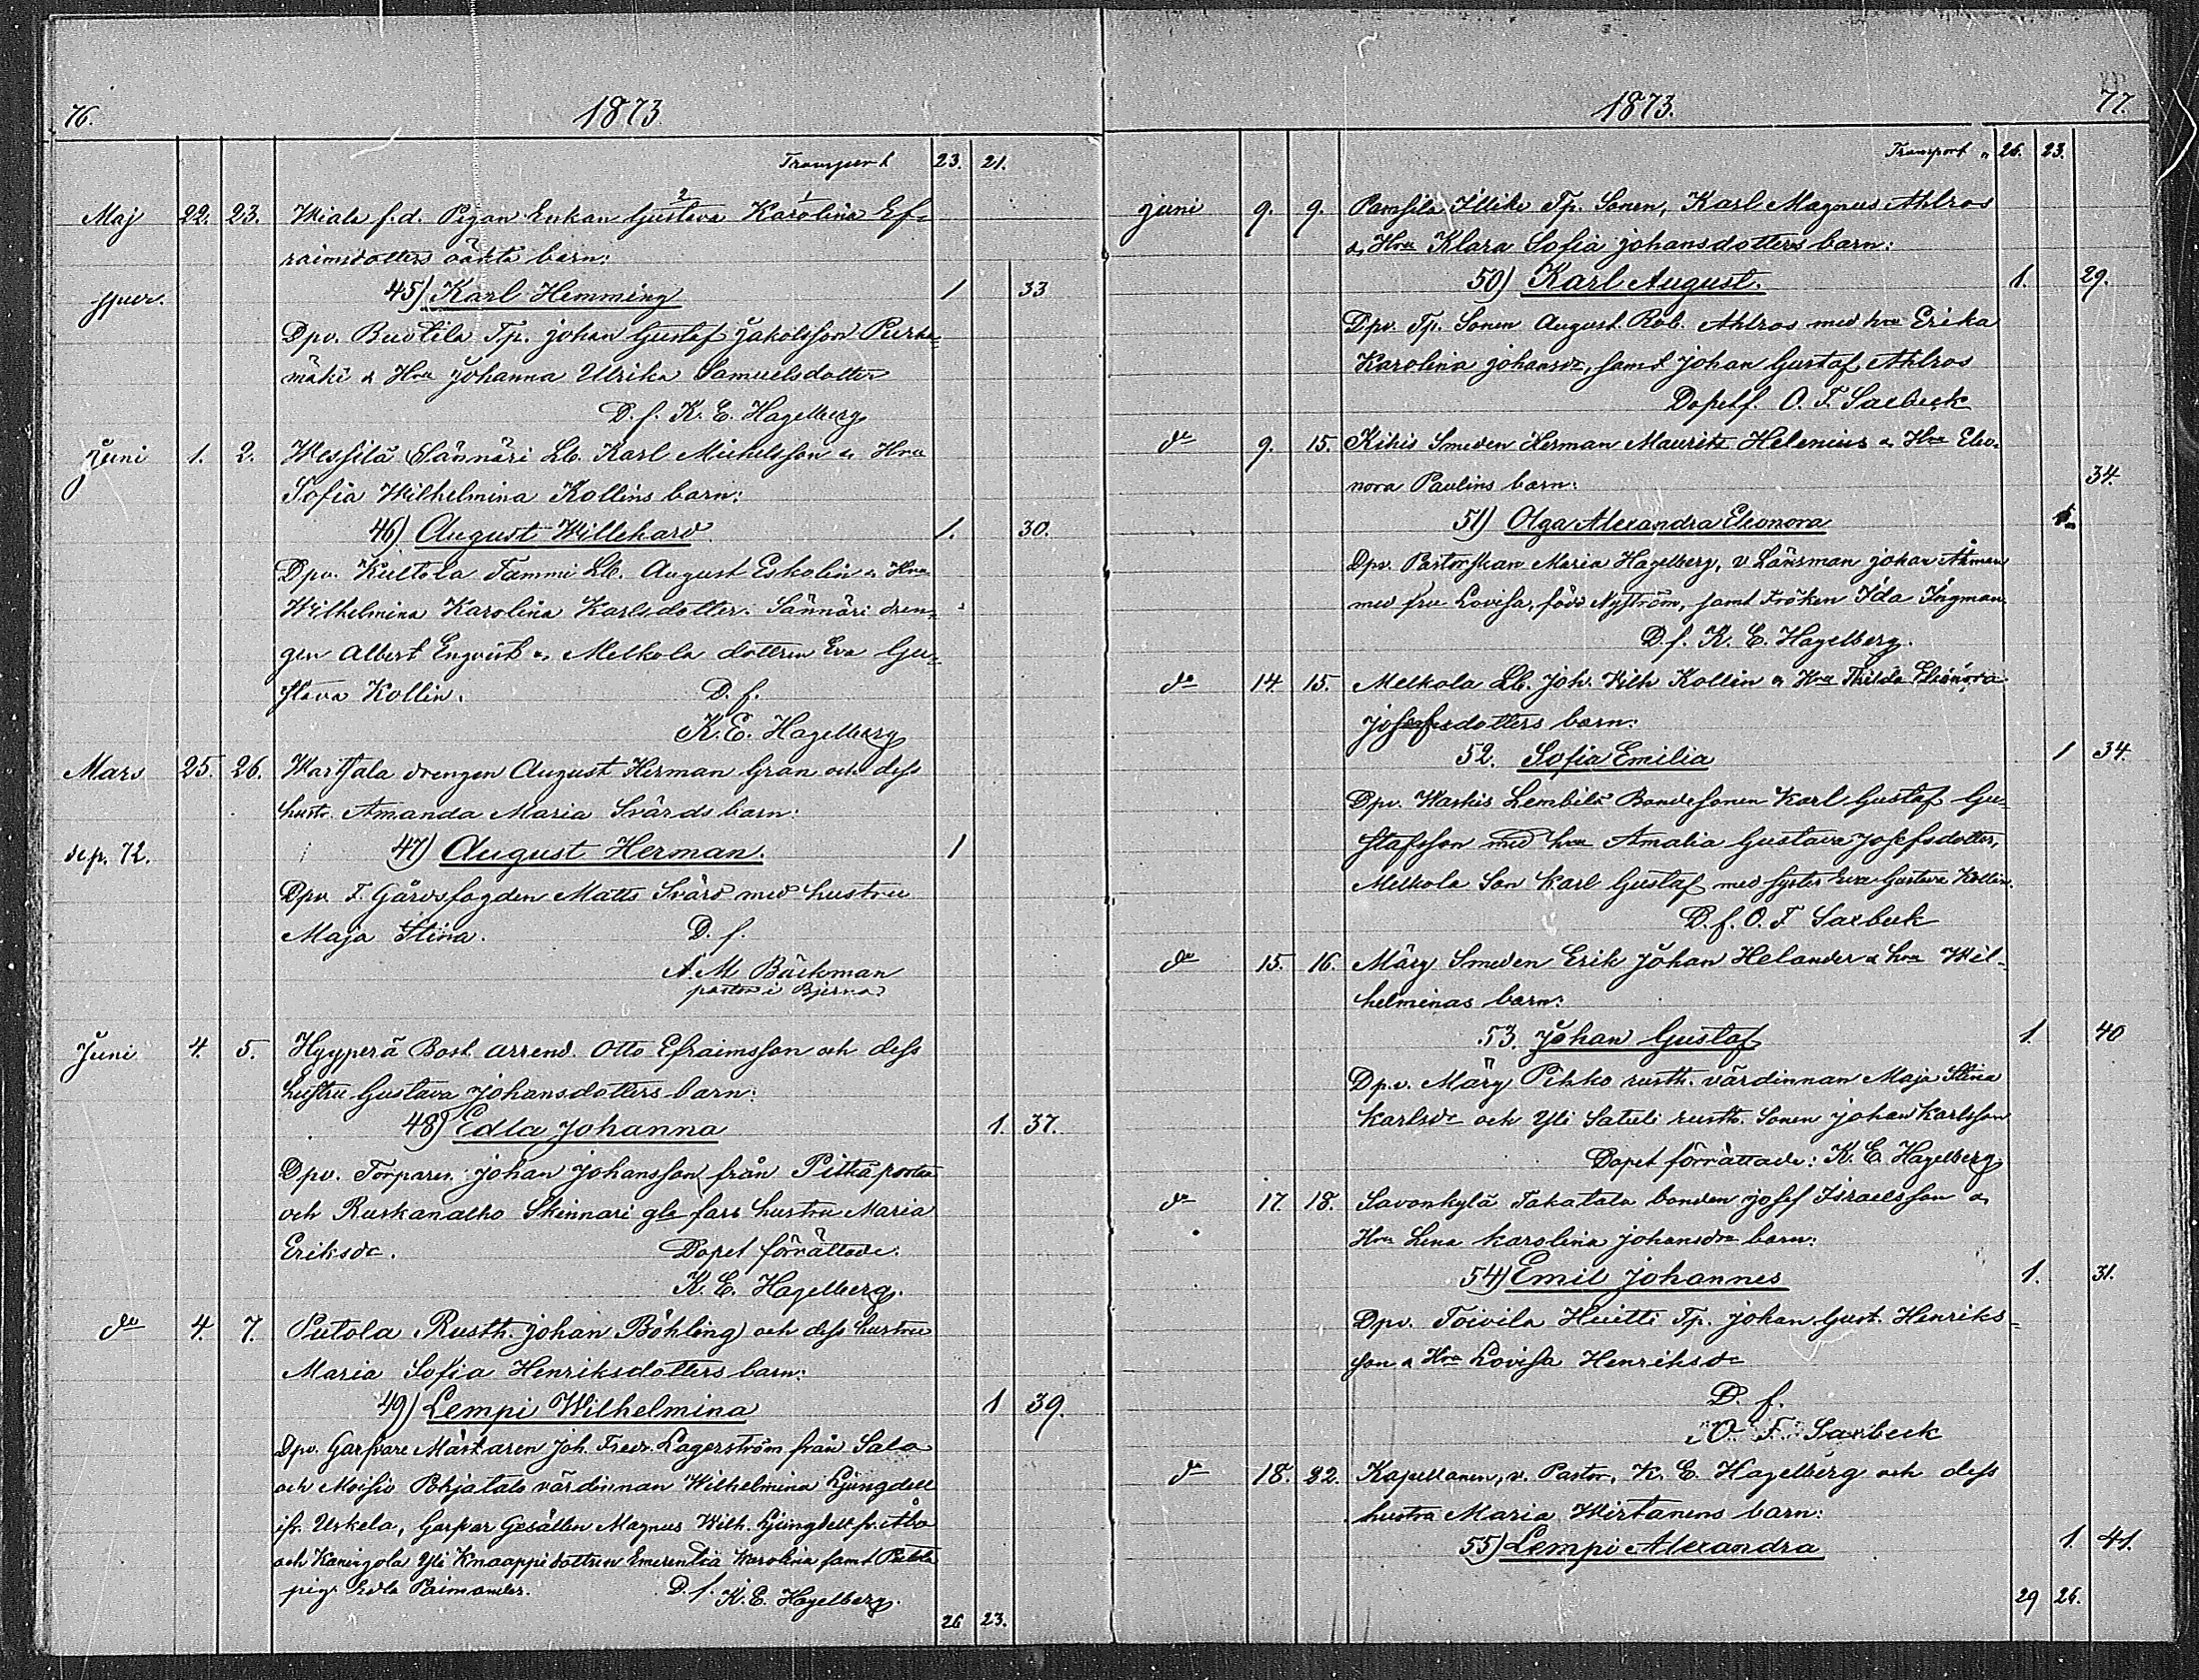 76.
1873.
Transport 23. 21.
Maj 22. 23. Wiala f.d. Pigan Enkan Gustava Karolina Ef-
2 1
raimsdotters oäkta barn:
spur. 45) Karl Hemming 1 33
Dpv. Buotila Tp. Johan Gustaf Jakobsson Purka-
mäki & Hru Johanna Ulrika Samuelsdotter
D. f. K. E. Hagelberg
Juni 1. 2. Wessilä Sännäri Lb. Karl Michelsson & Hru
Sofia Wilhelmina Kollins barn:
46) August Willehard 1. 30.
Dpv. Kultola Tammi Lb. August Eskolin & Hru
Wilhelmina Karolina Karlsdotter. Sännäri dren-
gen Albert Engvist & Melkola dottren Eva Gu-
stava Kollin. D. f.
K. E. Hagelberg
Mars 25. 26. Wartsala drengen August Herman Gran och dess
hustr. Amanda Maria Svärds barn:
dep. 72. 47) August Herman. 1
Dpv. F. Gårdsfogden Matts Svärd med hustru
Maja Stina. D. f.
A. M. Bäckman
pastor i Bjerno
Juni 4. 5. Hyyperä Bost. arrend. Otto Efraimsson och dess
hustru Gustava Johansdotters barn:
48) Edla Johanna 1. 37.
Dpv. Torparen Johan Johansson från Pitkäporta
och Ruskanalho Skinnari gle fars hustru Maria
Eriksdr. Dopet förrättade.
K. E. Hagelberg.
do 4. 7. Putola Rusth. Johan Böhling och dess hustru
Maria Sofia Henriksdotters barn:
49) Lempi Wilhelmina 1 39.
Dpv. Garfvare Mästaren Joh. Fredr. Lagerström från Salo
och Moisio Pohjatalo värdinnan Wilhelmina Ljungdell
ifr. Uskela, Garfvar Gesällen Magnus Wilh. Ljungdell fr. Åbo
och Kaningola Yli Knaappi dottren Emerentia Karolina samt
pig. Edla Paimander. D. f. K. E. Hagelberg.
26 23.
77.
1873.
Transport 26. 23.
Juni 9. 9. Pamsila Illike Tp. Sonen, Karl Magnus Ahlros
& Hru Klara Sofia Johansdotters barn:
50) Karl August. 1. 29.
Dpv. Tp. Sonen August Rob. Ahlros med hru Erika
Karolina Johansdr, samt Johan Gustaf Ahlros
Dopetf. O. F. Saxbeck
do 9. 15. Kikis Smeden Herman Mauritz Helenius & Hru Eleo-
nora Paulins barn: 34.
51) Olga Alexandra Eleonora 1.
Dpv. Pastorskan Maria Hagelberg, v. Länsman Johan Åhman
med fru Lovisa, född Nyström, samt Fröken Ida Ingman.
D. f. K. E. Hagelberg.
do 14. 15. Melkola Lb. Joh. Wilh Kollin & Hru Thilda Eleonora
Josefsdotters barn:
52. Sofia Emilia 1 34.
Dpv. Warhis Lembilä Bondesonen Karl Gustaf Gu-
stafsson med hru Amalia Gustava Josefsdotter,
Melkola Son Karl Gustaf med syster Eva Gustava Kollin.
D. f. O. F Saxbeck
do 15. 16. Märy Smeden Erik Johan Helander & hru Wil-
helminas barn:
53. Johan Gustaf 1. 40
Dp.v. Märy Pihko rusth. värdinnan Maja Stina
Karlsdr och Yli Satuli rusth. Sonen Johan Karlsson
Dopet förrättade: K. E. Hagelberg
do 17. 18. Savonkylä Takatalo bonden Josef Israelsson &
Hru Lena Karolina Johansdrs barn:
54) Emil Johannes 1. 31.
Dpv. Toivila Huitti Tp. Johan Gust. Henriks-
son & Hru Lovisa Henriksdr
D. f.
O. F. Saxbeck
do 18. 22. Kapellanen, v. Pastor, K. E. Hagelberg och dess
hustru Maria Wirtanens barn:
55) Lempi Alexandra 1. 41.
29 26.